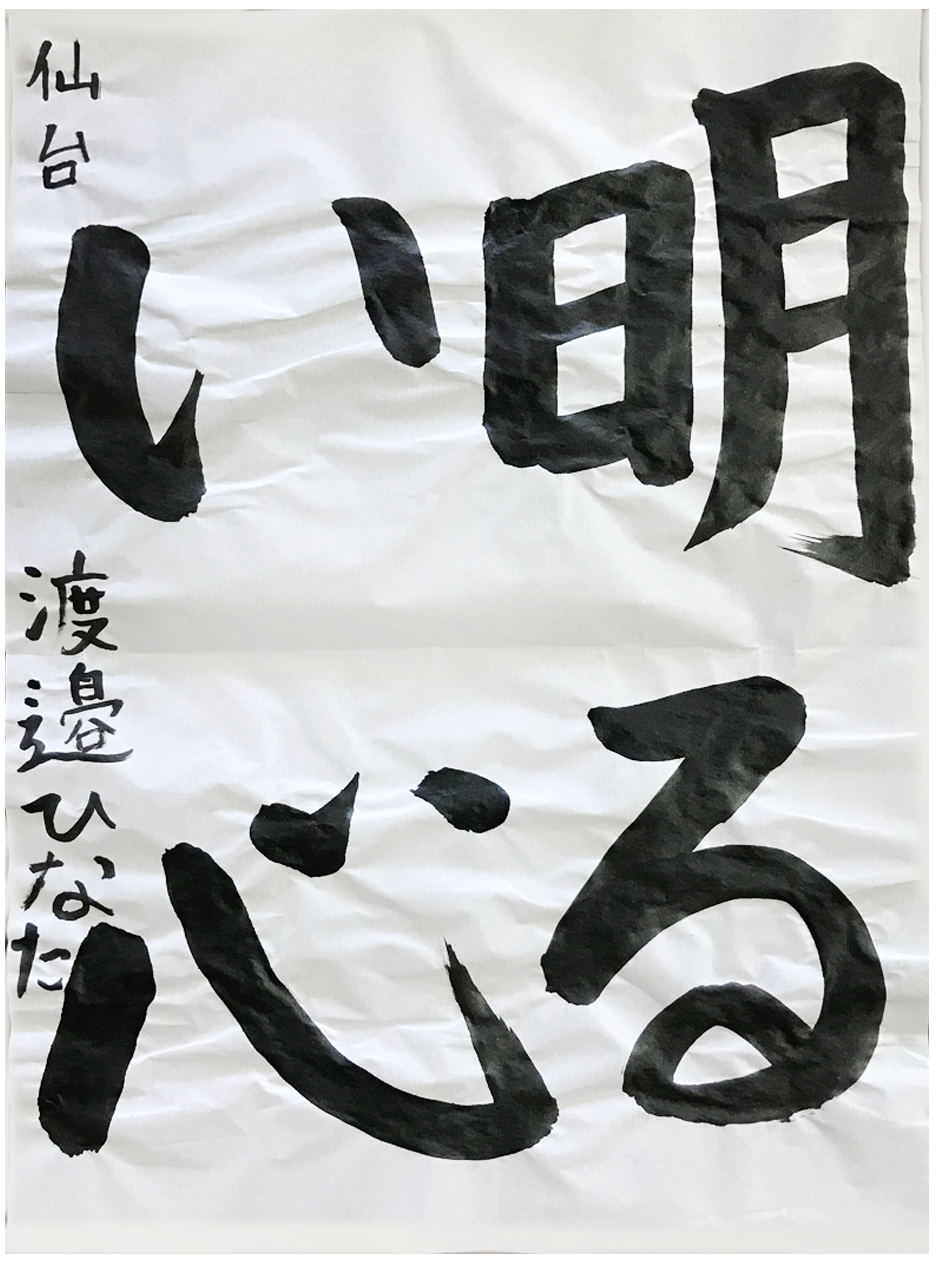 明る
い心
仙台
渡邉ひなた